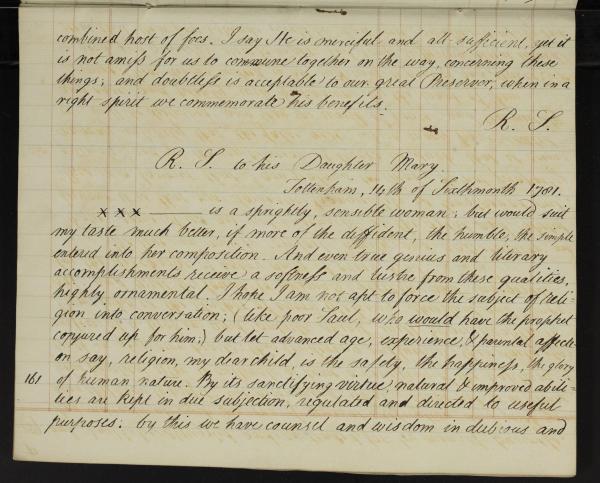 combined host of foes. I say He is merciful and all sufficient, yet it
is not amiss for us to commune together on the way, concerning these
things; and doubtless is acceptable to our great Preserver, when in a
right spirit we commemorate his benefits.
R. S.
R. S. to his Daughter Mary
Tottenham, 14th of Sixthmonth 1781.
x x x — is a sprightly, sensible woman; but would suit
my taste much better, if more of the diffident, the humble, the simple
entered into her composition. And even true genius and literary
accomplishments receive a softness and lustre from these qualities,
highly ornamental. I hope I am not apt to force the subject of reli-
gion into conversation; (like poor Saul, who would have the prophet
conjured up for him;) but let advanced age, experience, & parental affecti-
on say, religion, my dear child, is the safety, the happiness, the glory
161 of human nature. By its sanctifying virtue, natural & improved abili-
ties are kept in due subjection, regulated and directed to useful
purposes. by this we have counsel and wisdom in dubious and